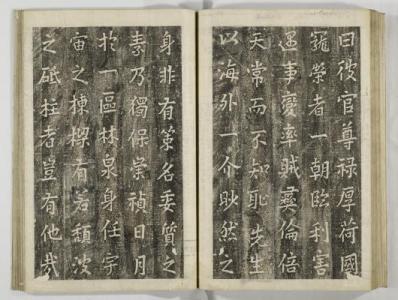 曰彼官尊禄厚荷國
寵榮者一朝臨利害
遇事變率賊彝倫倍
天常而不知恥先生
以海外一介耿然之
身非有策名委質之
素乃獨保崇禎日月
於一區林泉身任宇
宙之棟樑有若頹波
之砥柱者豈有他哉